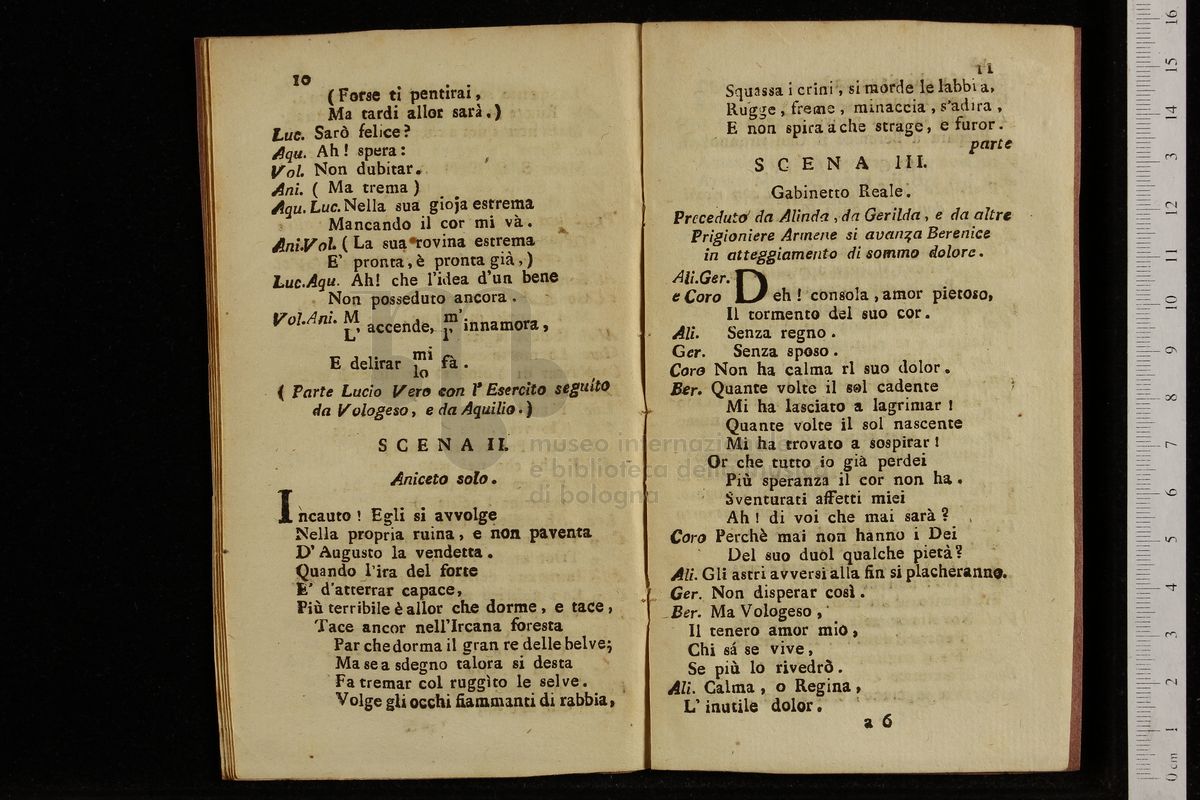 10
(Forse ti pentirai,
Ma tardi allor sarà.)
Luc. Sarò felice?
Aqu. Ah! spera:
Vol. Non dubitar.
Ani. ( Ma trema )
Aqu. Luc. Nella sua gioja estrema
Mancando il cor mi và.
Ani.Vol. ( La sua rovina estrema
E' pronta, è pronta già,)
Luc.Aqu. Ah! che l'idea d'un bene
Non posseduto ancora.
Vol.Ani. M L' accende, m' l' innamora,
E delirar mi lo fà.
( Parte Lucio Vero con l' Esercito seguito
da Vologeso, e da Aquilio.)
SCENA II.
Aniceto solo.
Incauto! Egli si avvolge
Nella propria ruina, e non paventa
D' Augusto la vendetta.
Quando l'ira del forte
E' d'atterrar capace,
Più terribile è allor che dorme, e tace,
Tace ancor nell'Ircana foresta
Par che dorma il gran re delle belve;
Ma se a sdegno talora si desta
Fa tremar col ruggìto le selve.
Volge gli occhi fiammanti di rabbia,
11
Squassa i crini, si morde le labbia,
Rugge, freme, minaccia, s'adira,
E non spira ache strage, e furor.
parte
SCENA III.
Gabinetto Reale.
Preceduto da Alinda, da Gerilda, e da altre
Prigioniere Armene si avanza Berenice
in atteggiamento di sommo dolore.
Ali.Ger.
e Coro Deh! consola, amor pietoso,
Il tormento del suo cor.
Ali. Senza regno.
Ger. Senza sposo.
Coro Non ha calma rl suo dolor.
Ber. Quante volte il sol cadente
Mi ha lasciato a lagrimar!
Quante volte il sol nascente
Mi ha trovato a sospirar!
Or che tutto io già perdei
Più speranza il cor non ha.
Sventurati affetti miei
Ah! di voi che mai sarà?
Coro Perchè mai non hanno i Dei
Del suo duol qualche pietà?
Ali. Gli astri avversi alla fin si placheranno.
Ger. Non disperar così.
Ber. Ma Vologeso,
Il tenero amor mio,
Chi sá se vive,
Se più lo rivedrò.
Ali. Calma, o Regina,
L' inutile dolor.
a 6
museo internazionale
e biblioteca della musica
di bologna
0 cm 1 2 3 4 5 6 7 8 9 10 11 12 13 14 15 16